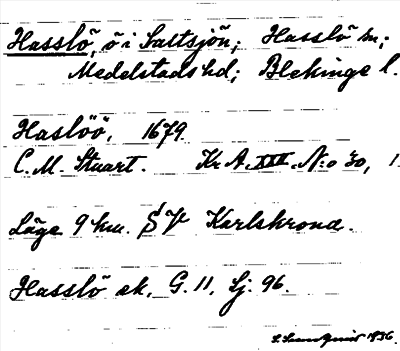 Hasslö, ö i Saltsjön; Hasslö sn;
Medelstads hd; Blekinge l.
Haslöö, 1679
C. M. Stuart. Kr A. XXX. N:o 30, 1.
Läge 9 km. SV Karlskrona.
Hasslö ek. G. 11, Lj. 96.
S. Sundquist 1936.